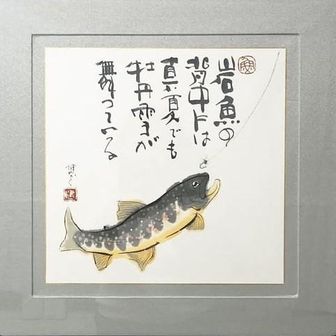 岩魚の
背中には
真夏でも
牡丹雪が
舞っている